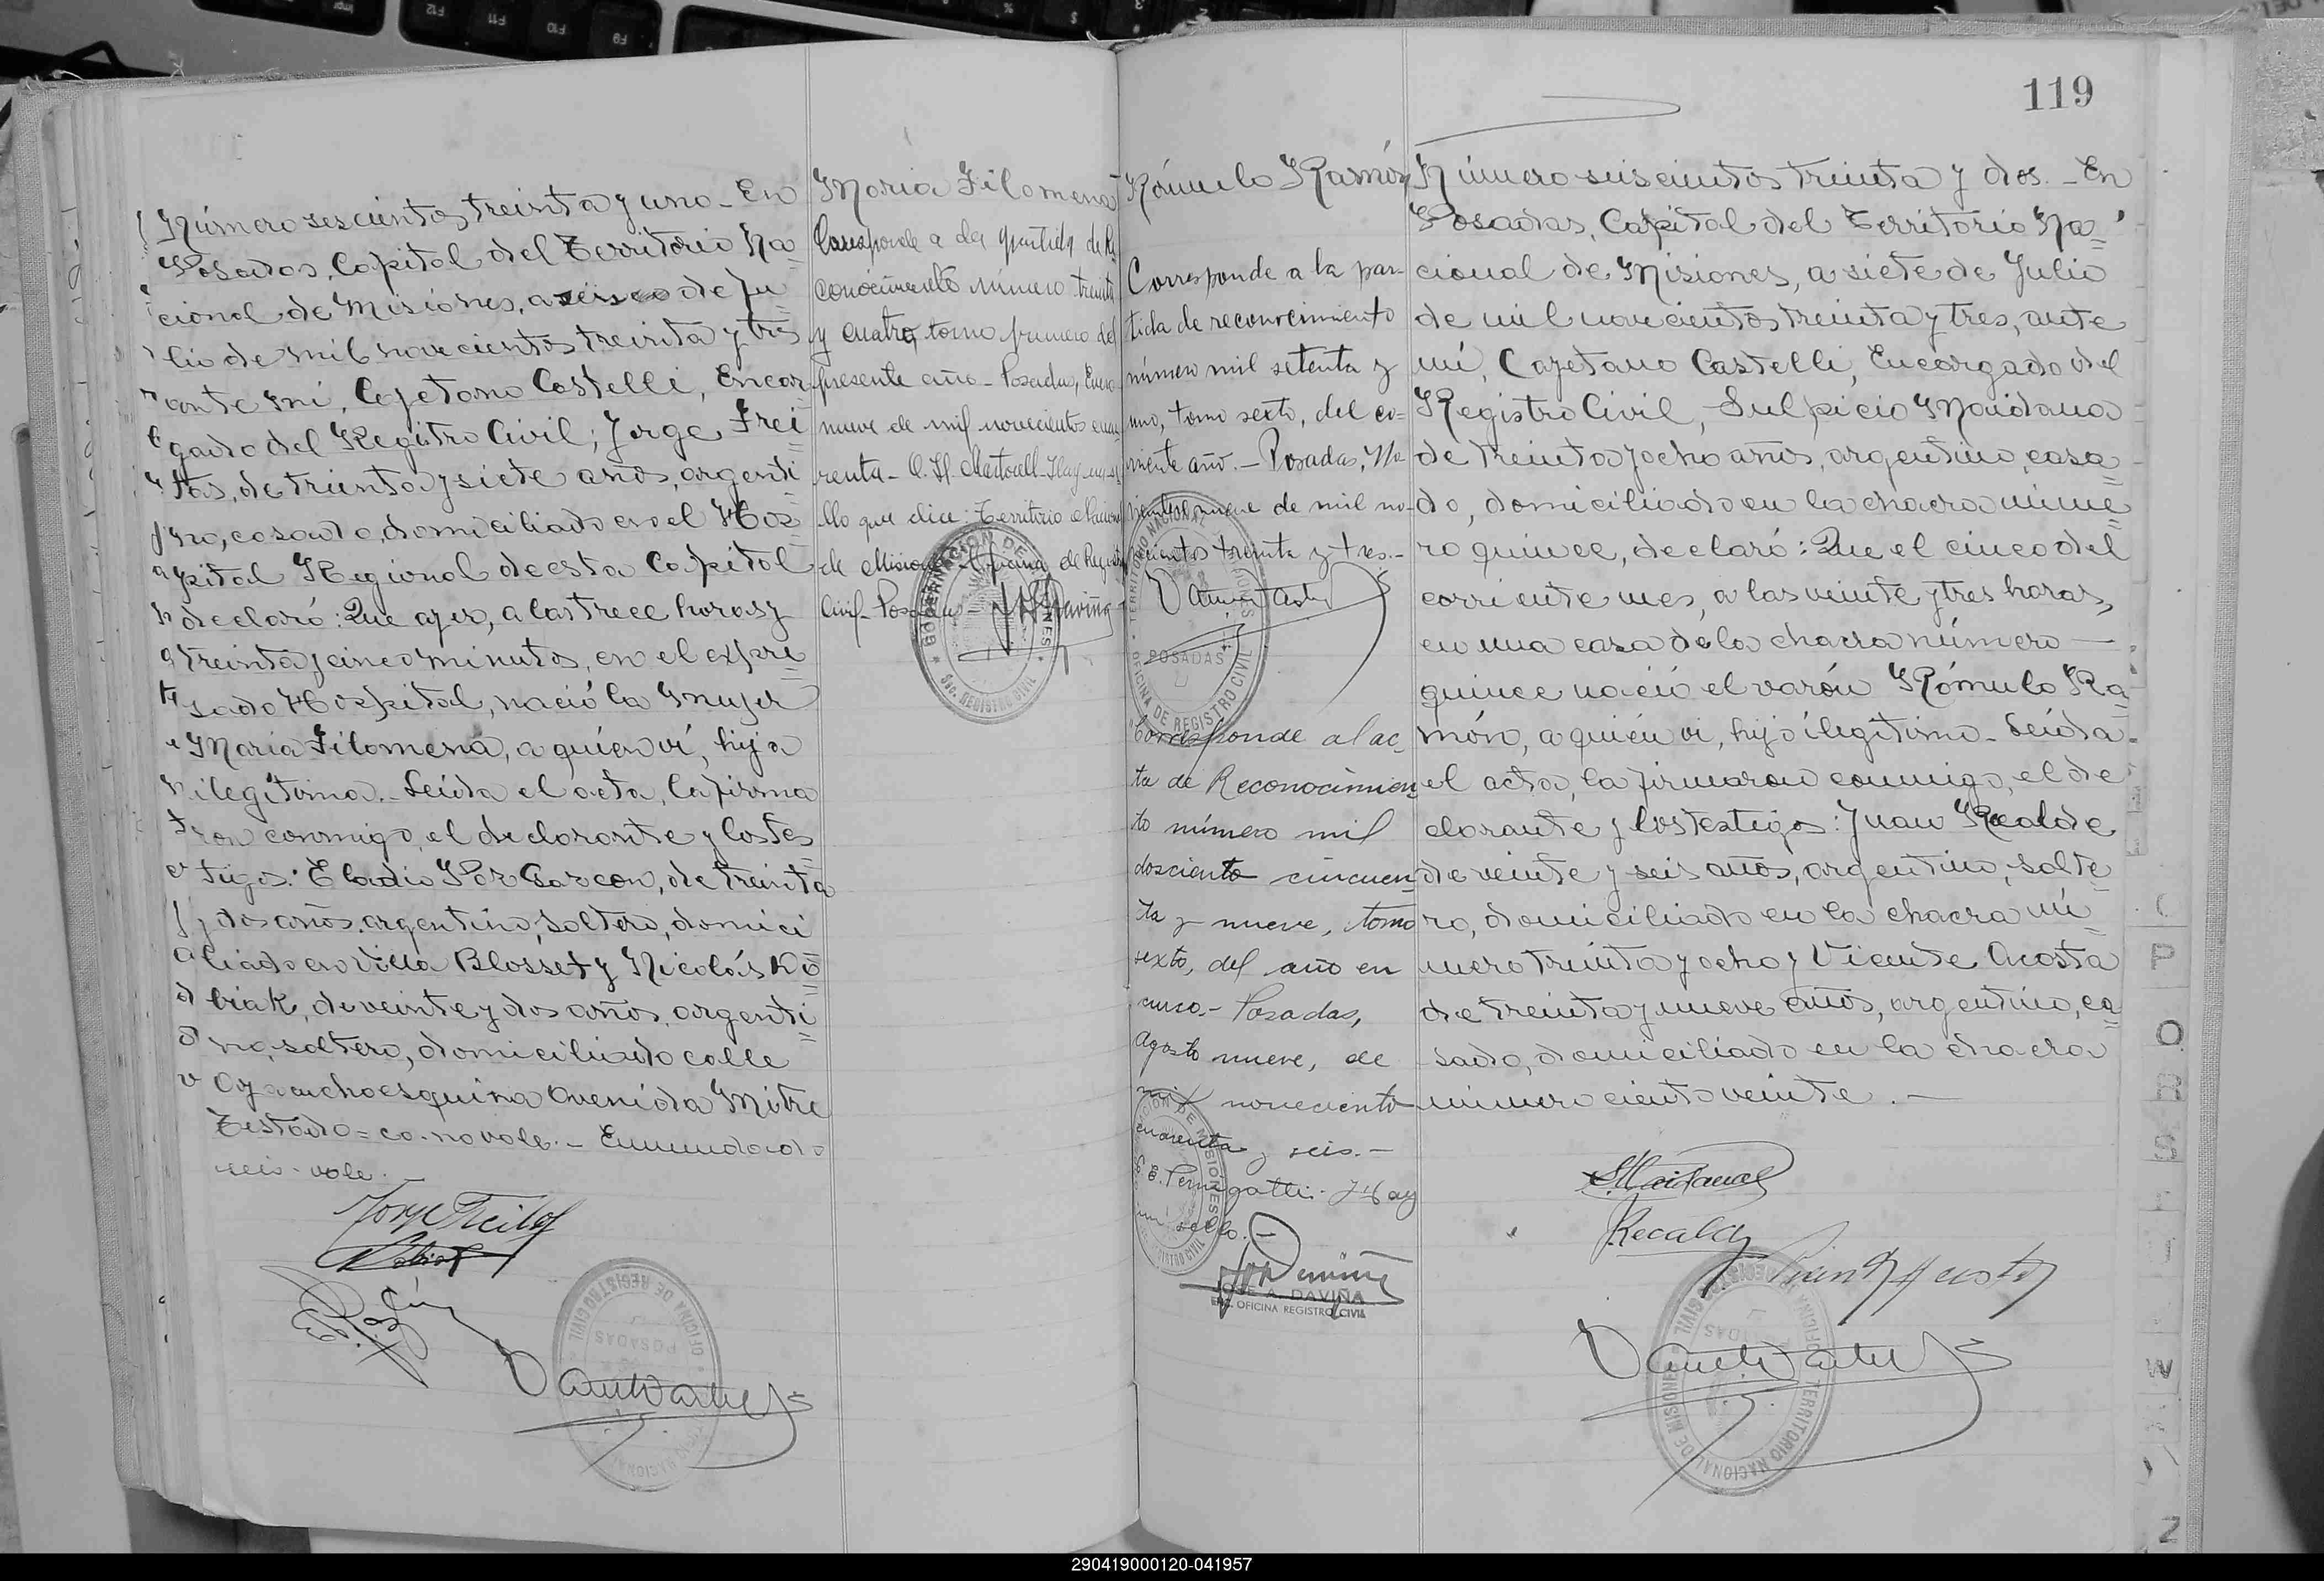 119
Número seiscientos treinta y uno - En
Posadas, Capital del Territorio Na=
cional de Misiones, a seis co de Ju
lio de mil novecientos treinta y tres
ante mí, Cayetano Castelli, Encar
gado del Registro Civil; Jorge Frei
tas, de treinta y siete años, argenti
no, casado, domiciliado en el Hos
pital Regional de esta Capital
declaró: Que ayer, a las trece horas y
treinta y cinco minutos, en el expre
sado Hospital, nació la mujer
María Filomena, a quien ví, hija
ilegítima.- Leída el acta, la firma
ron conmigo, el declarante y los tes
tigos: Eladio, de treinta
y dos años, argentino, soltero, domici
liado en Villa Blosset y Nicolás Do
biak, de veinte y dos años, argenti
no, soltero, domiciliado calle
Ayacucho esquina Avenida Mitre
Testado = co. no vale. - Enmendado
seis - vale.
María Filomena
Corresponde a la partida de Re
conocimiento número treinta
y cuatro, tomo primero del
presente año - Posadas, Enero
nueve de mil novecientos cua
renta - Hay un se
llo que dice: Territorio Nacional
de Misiones - Oficina de Registro
Civil - Posadas
GOBERNACION DE MISIONES
SEC. REGISTRO CIVIL
Rómulo Ramón
Corresponde a la par-
tida de reconocimiento
número mil setenta y
uno, tomo sexto, del co-
rriente año. - Posadas, No
viembre nueve de mil no-
vecientos treinta y tres.-
TERRITORIO NACIONAL DE MISIONES
POSADAS
OFICINA DE REGISTRO CIVIL
Corresponde al ac-
ta de Reconocimien
to número mil
doscientos cincuen-
ta y nueve, tomo
sexto, del año en
curso.- Posadas,
Agosto nueve, de
mil novecientos
cuarenta y seis.-
Hay
un sello.-
JOSE A. DAVIÑA
ENC. OFICINA REGISTRO CIVIL
Número seiscientos treinta y dos. - En
Posadas, Capital del Territorio Na=
cional de Misiones, a siete de Julio
de mil novecientos treinta y tres, ante
mí, Cayetano Castelli, Encargado del
Registro Civil, Sulpicio Maidana
de treinta y ocho años, argentino, casa
do, domiciliado en la chacra núme
ro quince, declaró: Que el cinco del
corriente mes, a las veinte y tres horas,
en una casa de la chacra número
quince nació el varón Rómulo Ra
món, a quién vi, hijo ilegítimo - Leída
el acta, la firmaron conmigo, el de
clarante y los testigos: Juan Recalde
de veinte y seis años, argentino, solte
ro, domiciliado en la chacra nú
mero treinta y ocho y Vicente Acosta
de treinta y nueve años, argentino, ca
sado, domiciliado en la chacra
número ciento veinte. -
S Maidana
Recalde
Vicente Acosta
OFICINA DE REGISTRO CIVIL
POSADAS
TERRITORIO NACIONAL DE MISIONES
P
Q
R
S
W
Z
290419000120-041957